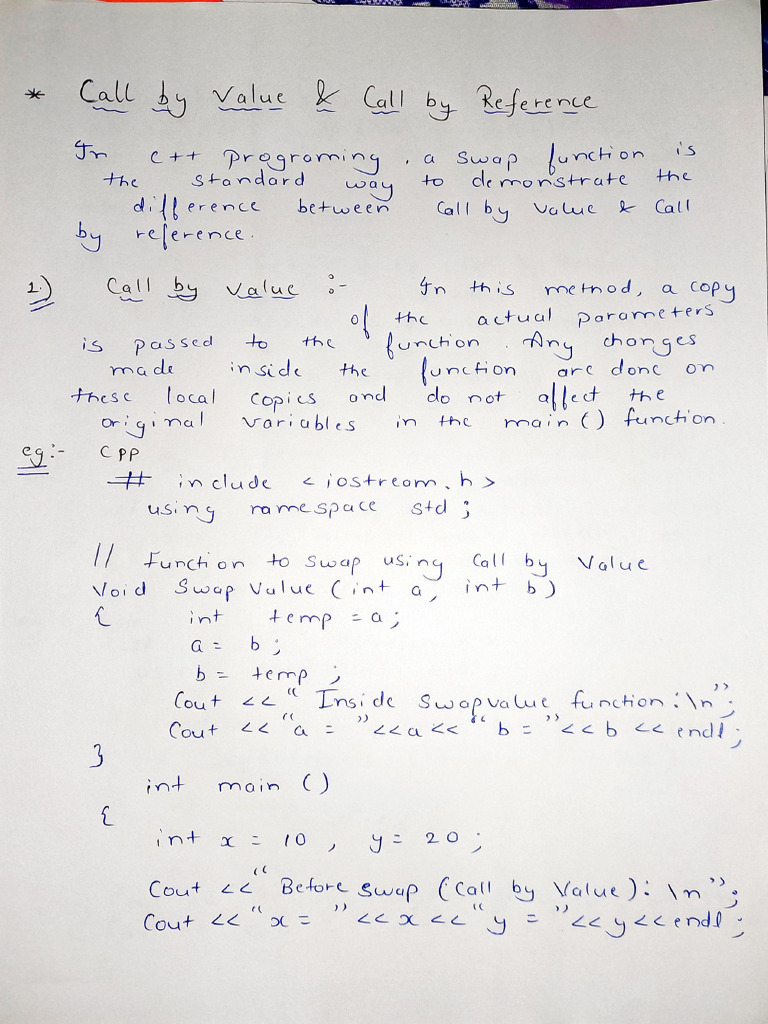 * Call by Value & Call by Reference
In C++ programing, a swap function is
the standard way to demonstrate the
difference between Call by Value & Call
by reference.
1.) Call by value :- In this method, a copy
of the actual parameters
is passed to the function. Any changes
made inside the function are done on
these local copies and do not affect the
original variables in the main() function.
eg:- CPP
# include <iostream.h>
using namespace std;
// Function to swap using Call by Value
Void Swap Value (int a, int b)
{ int temp = a;
a = b;
b = temp;
Cout << "Inside Swapvalue function:\n";
Cout << "a = "<<a<< "b = "<<b << endl;
}
int main ()
{
int x = 10, y = 20;
Cout << "Before swap (Call by Value): \n";
Cout << "x = " << x << "y = "<<y<<endl;